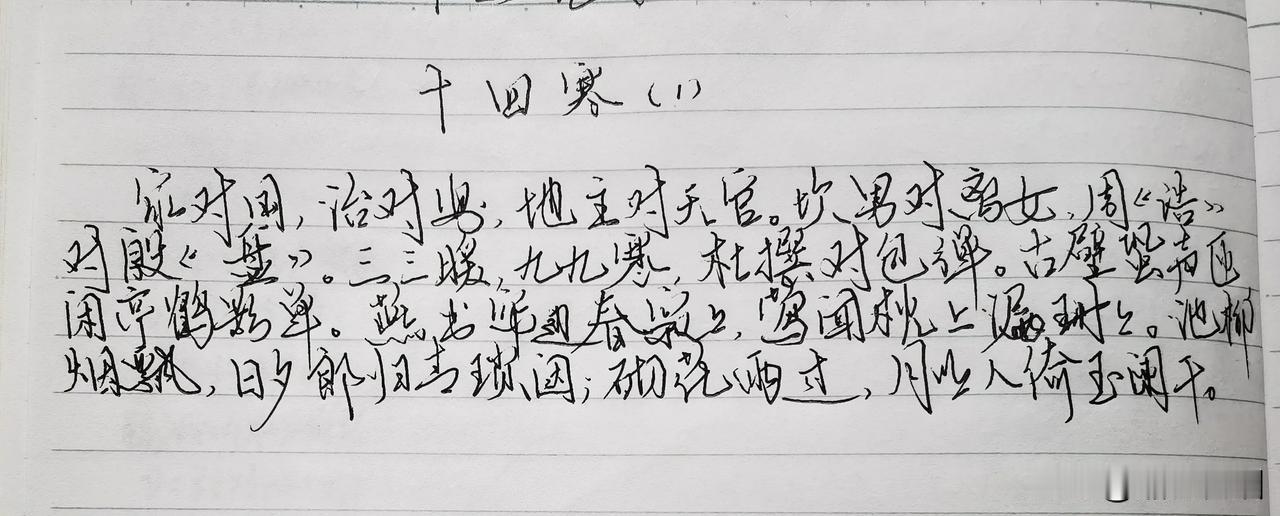 十四寒(1)
家对国，治对安，地主对天官。坎男对离女，周《诰》
对殷《盘》。三三暖，九九寒，杜撰对包弹。古壁蛩声匝
闲亭鹤影单。燕出帘边春寂々，莺闻枕上漏珊々。池柳
烟飘，日夕郎归青琐闼；砌花雨过，月明人倚玉阑干。